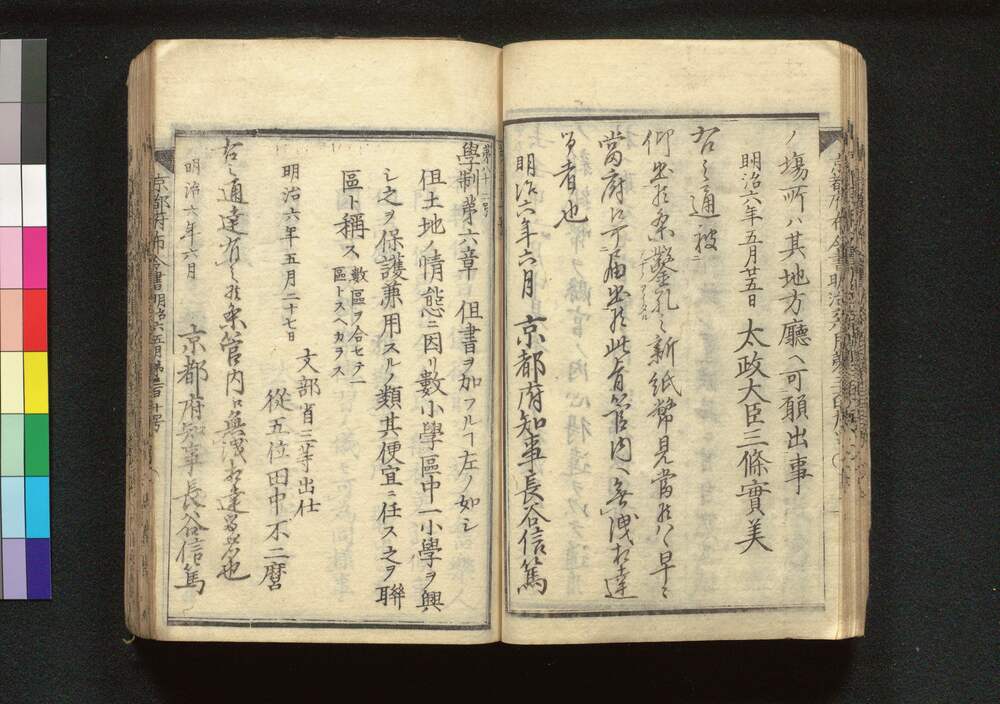 ノ塲所ハ其地方廳ヘ可願出事
明治六年五月廿五日　太政大臣三條實美
右之通被
仰出候条鑿孔之新紙幣見當候ハヽ早々
當府江可届出候此旨管内ヘ無洩相達
る者也
明治六年六月　京都府知事長谷信篤
第八十二号
學制第六章　但書ヲ加フルヿ左ノ如シ
但土地ノ情態ニ因リ數小學區中一小學ヲ興
シ之ヲ保護兼用スルノ類其便宜ニ任ス之ヲ聯
區ト稱ス　數區ヲ合セテ一
區トスヘカラス
明治六年五月二十七日
文部省三等出仕
從五位田中不二麿
右之通達有之候条管内江無洩相達るもの也
明治六年六月
京都府知事長谷信篤
京都府布令書明治六五月第二百十号